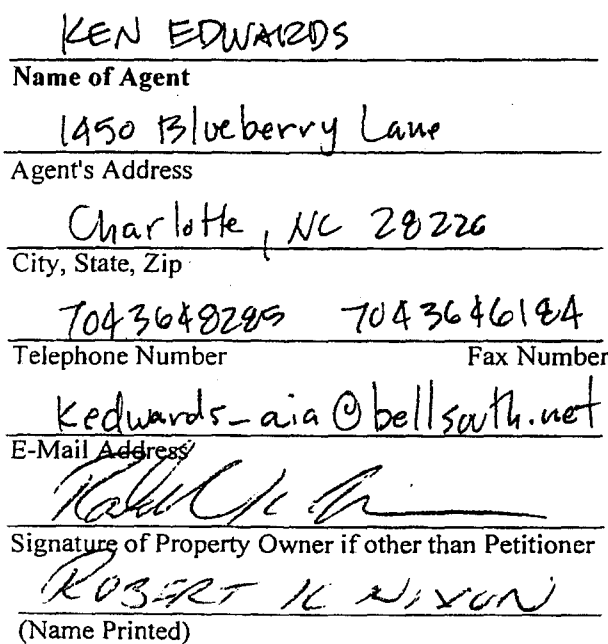 KEN EDWARDS
Name of Agent
1450 Blueberry Lane
Agent's Address
Charlotte, NC 28226
City, State, Zip
7043648285 7043646184
Telephone Number Fax Number
kedwards_aia@bellsouth.net
E-Mail Address
Signature of Property Owner if other than Petitioner
ROBERT K NIXON
(Name Printed)